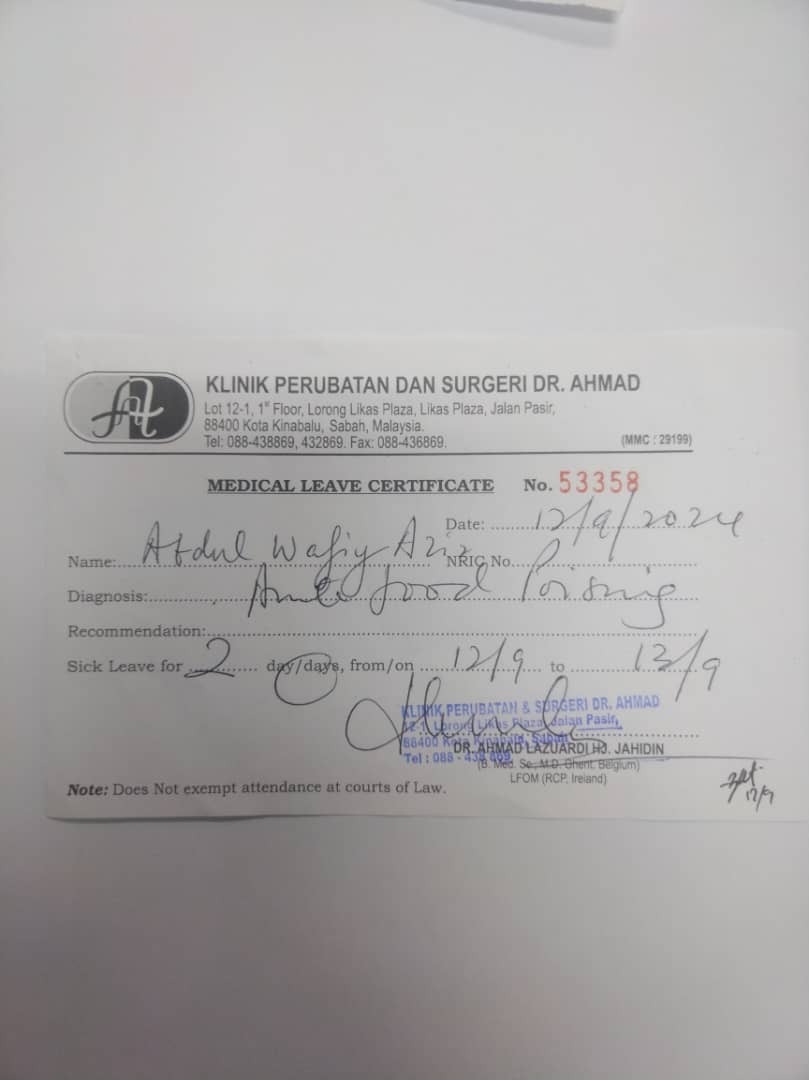 KLINIK PERUBATAN DAN SURGERI DR. AHMAD
Lot 12-1, 1st Floor, Lorong Likas Plaza, Likas Plaza, Jalan Pasir,
88400 Kota Kinabalu, Sabah, Malaysia.
Tel: 088-438869, 432869. Fax: 088-436869.
(MMC : 29199)
MEDICAL LEAVE CERTIFICATE No. 53358
Date: 12/9/2024
Name: Abdul Wafiy Aziz NRIC No.
Diagnosis: Acute food Poisning
Recommendation:
Sick Leave for 2 day/days, from/on 12/9 to 13/9
KLINIK PERUBATAN & SURGERI DR. AHMAD
12-1, Lorong Likas Plaza, Jalan Pasir,
88400 Kota Kinabalu, Sabah
Tel : 088 - 438 869
DR. AHMAD LAZUARDI HJ. JAHIDIN
(B. Med. Sc., M.D. Ghent. Belgium)
LFOM (RCP, Ireland)
Note: Does Not exempt attendance at courts of Law.
12/9